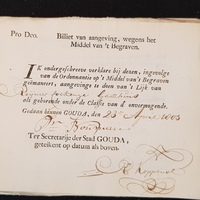 Pro Deo. Billet van aangeving, wegens het
Middel van 't Begraven.
IK ondergeschreve verklare bij dezen, ingevolge
van de Ordonnantie op 't Middel van 't Begraven
geëmaneert, aangevinge te doen van 't Lijk van
als gehoorende onder de Classis van d'onvermogende.
Gedaan binnen GOUDA, den 23 April 1803
Ter Secretarije der Stad GOUDA,
geteikent op datum als boven.